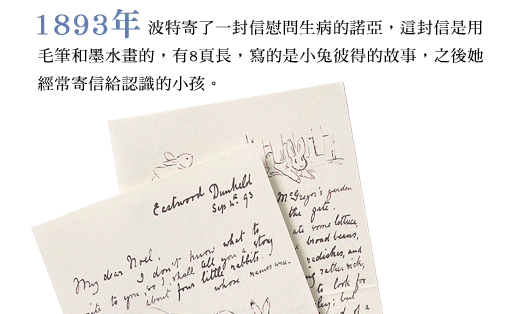 1893年 波特寄了一封信慰問生病的諾亞，這封信是用
毛筆和墨水畫的，有8頁長，寫的是小兔彼得的故事，之後她
經常寄信給認識的小孩。
Eastwood Dunkeld
Sep 4th 93
My dear Noel,
I don't know what to
write to you, so I shall tell you a story
about four little rabbits.
whose names were
McGregor's garden
the gate.
ate some lettuce,
broad beans,
radishes, and
rather sick,
to look for
but
of a